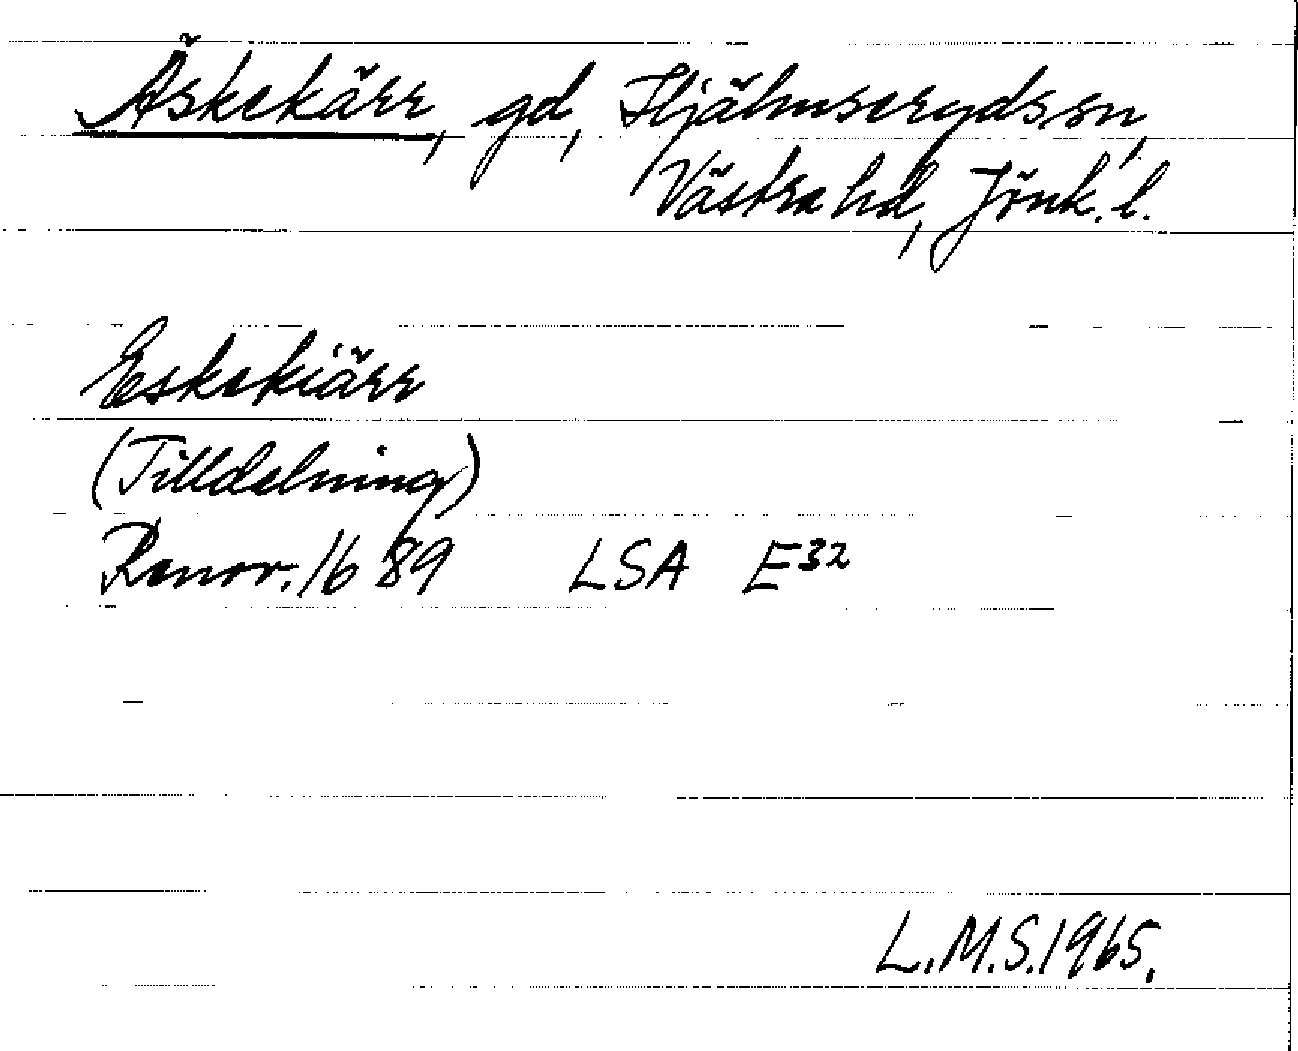 Äskekärr, gd, Hjälmserydssn,
Västra hd, Jönk. l.
Eskekiärr
(Tilldelning)
Renov. 1689 LSA E32
L.M.S. 1965.